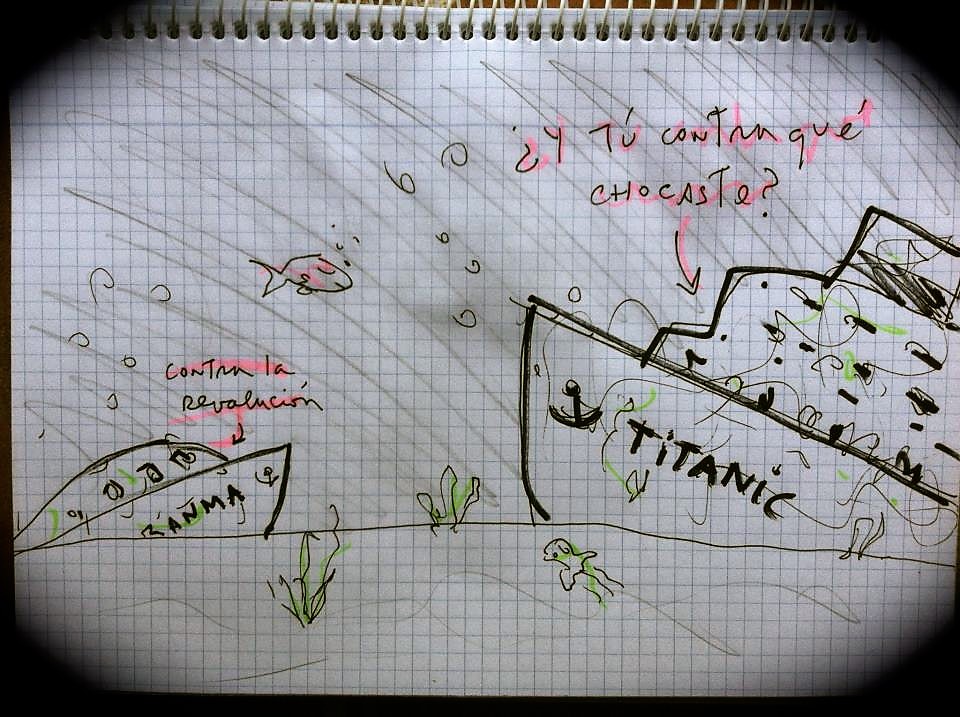 ¿Y TÚ CONTRA QUÉ
CHOCASTE?
CONTRA LA
REVOLUCIÓN
TITANIC